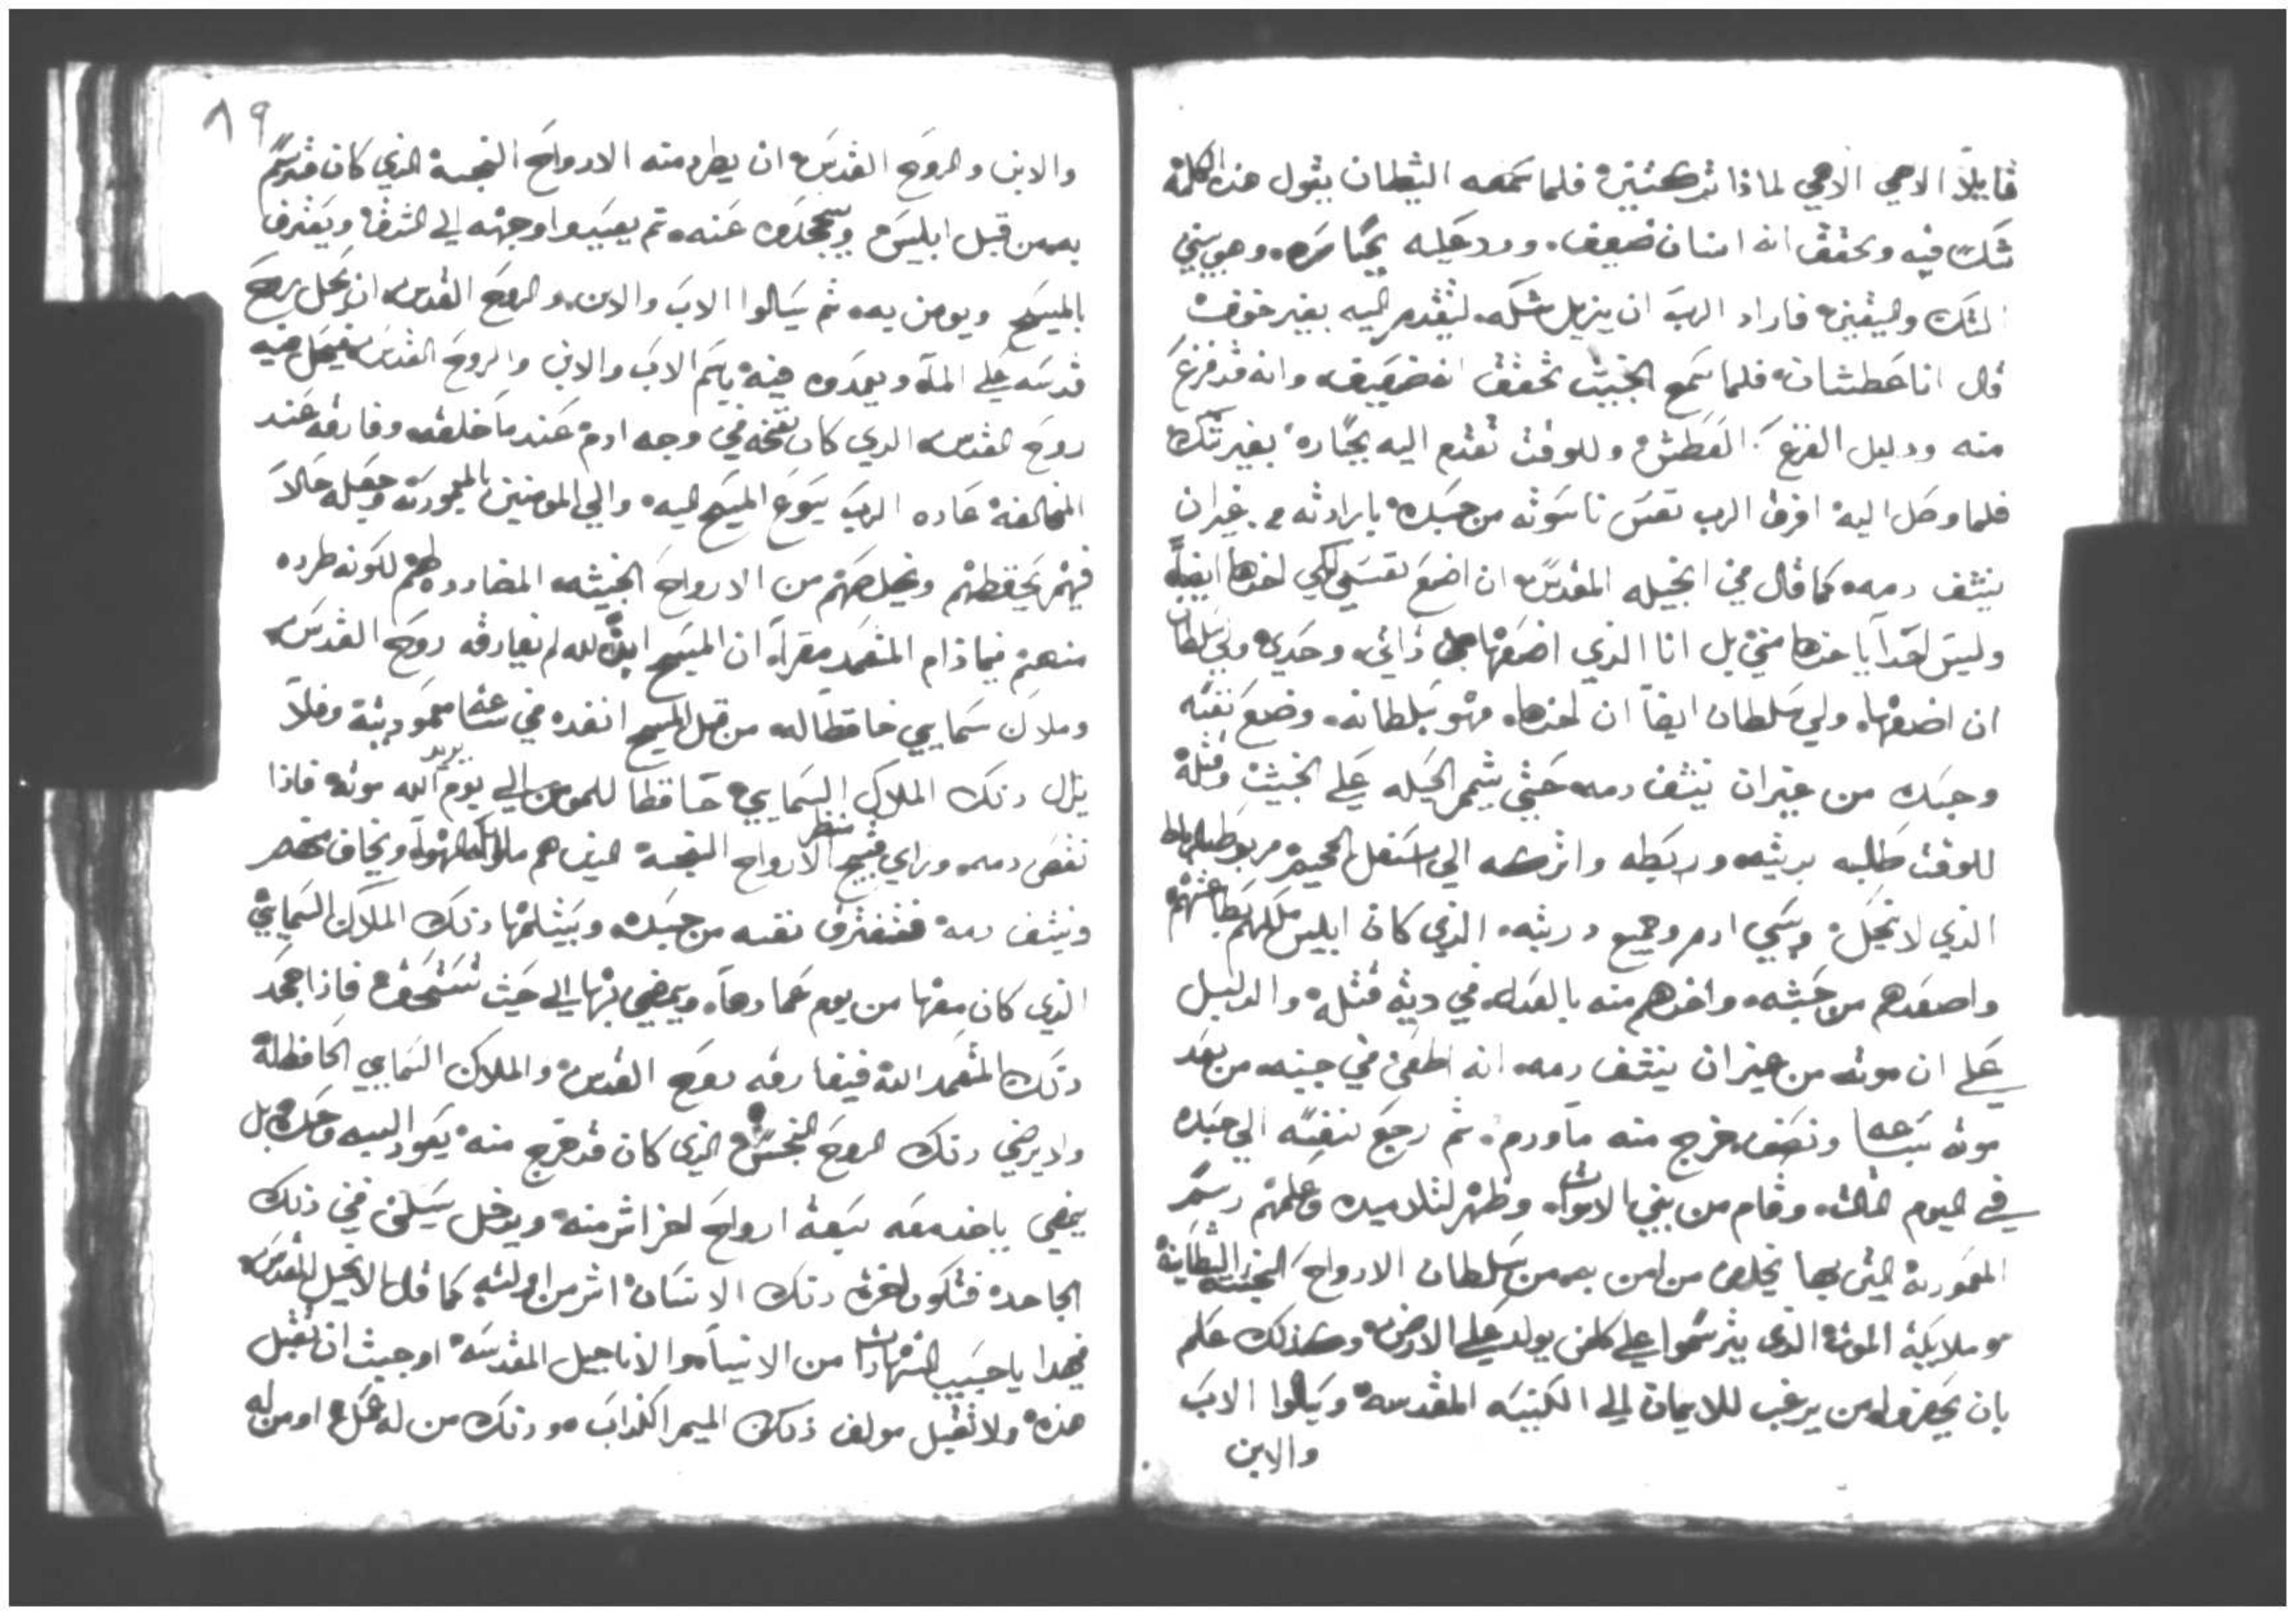 قايلاً الاهي الاهي لماذا تركتني فلما سمعه الشيطان يقول هذه الكلمة
شك فيه وتحقق انه انسان ضعيف ورد عليه بجساره وهو بين
الشك واليقين فاراد الرب ان يزيل شكه ليتقدم اليه بغير خوف
قال انا عطشان فلما سمع الخبيث تحقق انه ضعيف وانه قد فزع
منه ودليل الفزع العطش وللوقت تقدم اليه بجساره بغير شك
فلما وصل اليه افرق الرب نفس ناسوته من جسده بارادته من غير ان
ينشف دمه كما قال في انجيله المقدس ان اضع نفسي لكي اخدها ايضاً
وليس احداً ياخدها مني بل انا الذي اضعها من ذاتي وحدي ولي سلطان
ان اضعها ولي سلطان ايضاً ان اخدها فهو بسلطانه وضع نفسه
وجسده من غير ان ينشف دمه حتى يتم الحيله على الخبيث وقتله
للوقت طلبه بديته وربطه واتركه الى اسفل الجحيم مربوط برباط
الذي لا ينحل وسبي ادم وجميع دريته الذي كان ابليس ملكهم بطاعتهم
واصعدهم من حبسه واخدهم منه بالعدل في دية قتله والدليل
على ان موته من غير ان ينشف دمه انه اطعن في جنبه من بعد
موته بساعه ونصف خرج منه ماء ودم ثم رجع نفسه الى جسده
في اليوم الثالث وقام من بين الاموات وظهر لتلاميده وعلمهم رسم
المعموديه التي بها يخلص من امن به من سلطان الارواح النجسه الشيطانية
وملايكة الموت الذي يترسموا على كلمن يولد على الارض وكذلك علم
بان يحضروا من يرغب للايمان الى الكنيسه المقدسه ويسالوا الاب
والابن
٨٩
والابن والروح القدس ان يطرد منه الارواح النجسة الذي كان قد رسم
به من قبل ابليس ويجحده عنه ثم يعيدوا وجهه الى الشرق ويعترف
بالمسيح ويومن به ثم يسالوا الاب والابن والروح القدس ان يحل بروح
قدسه على الماء ويعمدوه فيه باسم الاب والابن والروح القدس فيحل فيه
روح القدس الدي كان نفخه في وجه ادم عندما خلقه وفارقه عند
المخالفة عاده الرب يسوع المسيح اليه والي المومنين بالمعموديه وجعله حالاً
فيهم يحفظهم ويخلصهم من الارواح الخبيثه المضادده لهم لكونه طرده
منهم فما دام المتعمد مقراً ان المسيح ابن الله لم يفارقه روح القدس
وملاك سمايي حافظا له من قبل المسيح انفده في ساعة معموديتة وفلا
يزال دلك الملاك السمايي حافظاً للمومن الى يوم يريد الله موته فادا
نقص دمه وراي قبيح منظر الارواح النجسة الدين هم ملايكة الهوا ويخاف منهم
وينشف دمه فتفترق نفسه من جسده ويستلمها دلك الملاك السمايي
الذي كان معها من يوم عمادها ويمضي بها الى حيث تستحق فادا جحد
دلك المتعمد الله فيفارقه روح القدس والملاك السمايي الحافظ له
واد يرضي دلك الروح النجس الذي كان قد خرج منه يعود اليه وحده بل
يمضي ياخد معه سبعة ارواح اخر اشر منه ويدخل يسكن في دلك
الجاحد فتكون اخرة دلك الانسان اشر من اوليته كما قال الانجيل المقدس
فهدا يا حبيب الشهادات من الانبياء والاناجيل المقدسه اوجبت ان تقبل
هذه ولا تقبل مولف دلك الميمر الكداب ودلك من له عقل او من له